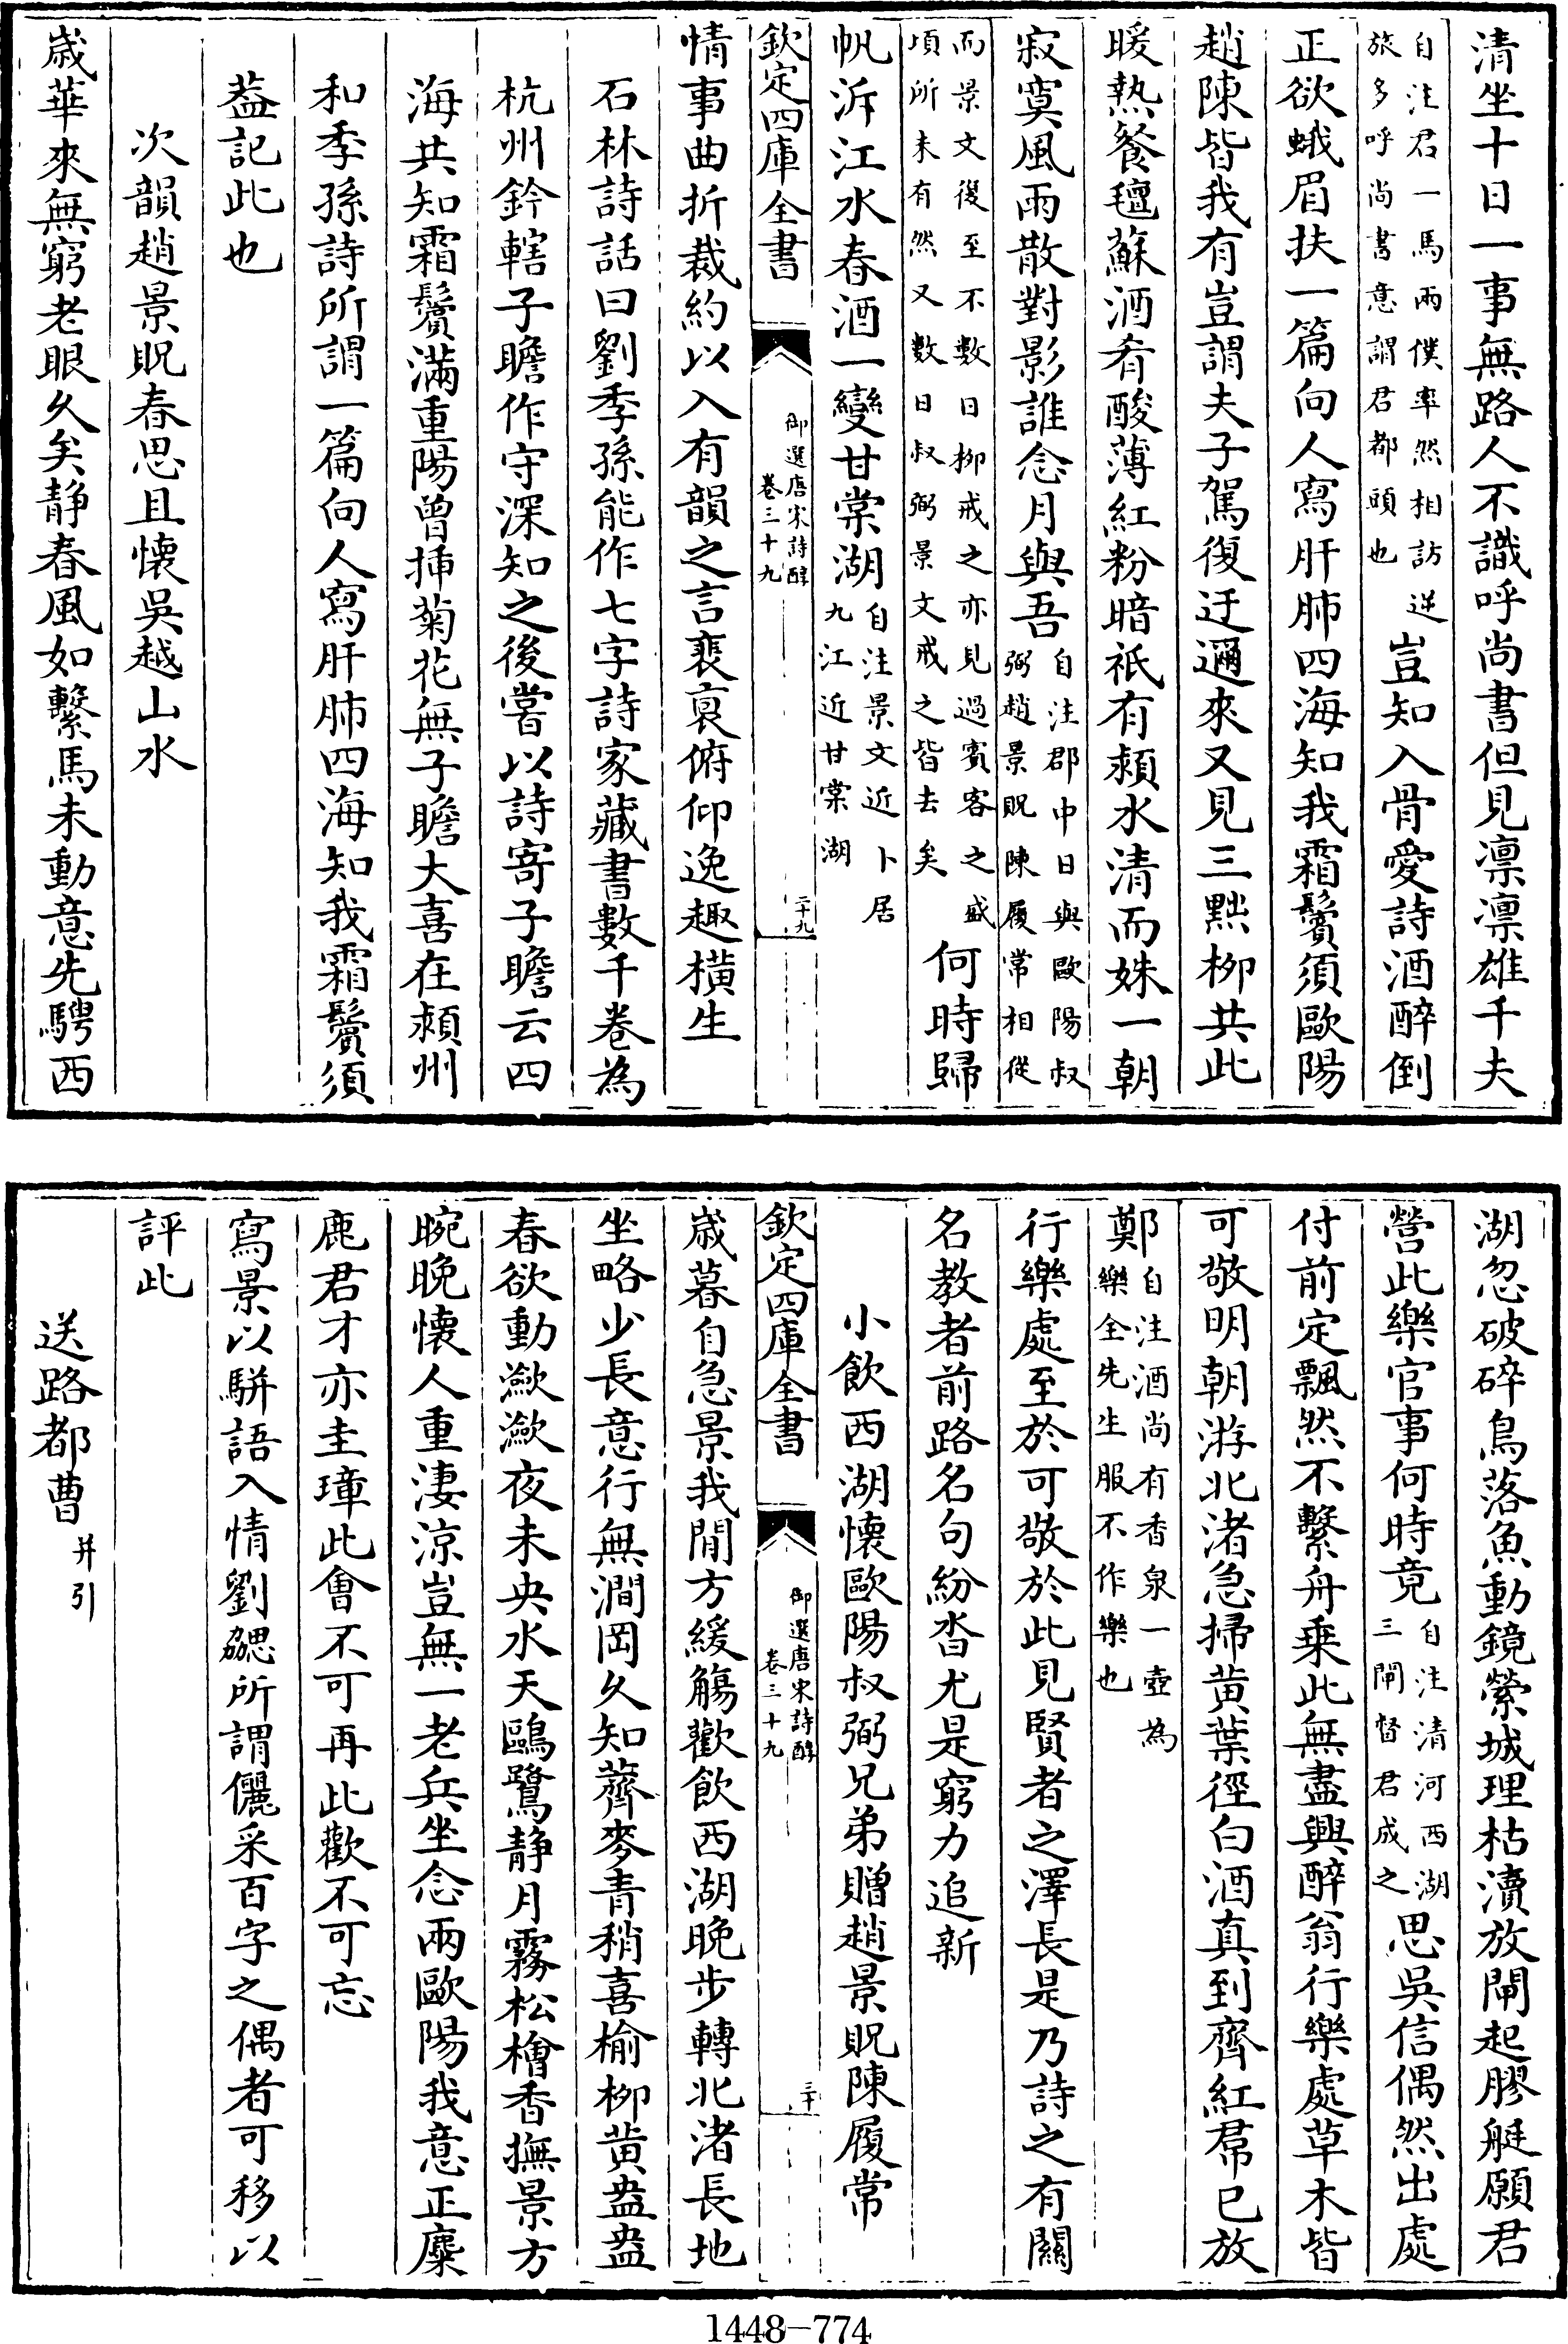 清坐十日一事無路人不識呼尚書但見凛凛雄千夫
自注君一馬兩僕率然相訪逆旅多呼尚書意謂君都頭也豈知入骨愛詩酒醉倒
正欲蛾眉扶一篇向人寫肝肺四海知我霜鬢須歐陽
趙陳皆我有豈謂夫子駕復迂邇來又見三黜柳共此
暖熱餐氊蘇酒肴酸薄紅粉暗祇有潁水清而姝一朝
寂寞風雨散對影誰念月與吾自注郡中日與歐陽叔弼趙景貺陳履常相從
而景文復至不數日柳戒之亦見過賓客之盛頃所未有然又數日叔弼景文戒之皆去矣何時歸
帆泝江水春酒一變甘棠湖自注景文近卜居九江近甘棠湖
欽定四庫全書 御選唐宋詩醇卷三十九 二十九
情事曲折裁約以入有韻之言裴裒俯仰逸趣橫生
石林詩話曰劉季孫能作七字詩家藏書數千卷為
杭州鈐轄子瞻作守深知之後嘗以詩寄子瞻云四
海共知霜鬢滿重陽曾揷菊花無子瞻大喜在潁州
和季孫詩所謂一篇向人寫肝肺四海知我霜鬢須
葢記此也
次韻趙景貺春思且懷吳越山水
歲華來無窮老眼久矣靜春風如繫馬未動意先騁西
湖忽破碎鳥落魚動鏡縈城理枯瀆放閘起膠艇願君
營此樂官事何時竟自注清河西湖三閘督君成之思吳信偶然出處
付前定飄然不繫舟乗此無盡興醉翁行樂處草木皆
可敬明朝游北渚急掃黄葉徑白酒真到齊紅帬已放
鄭自注酒尚有香泉一壺為樂全先生服不作樂也
行樂處至於可敬於此見賢者之澤長是乃詩之有闗
名教者前路名句紛沓尤是窮力追新
小飲西湖懷歐陽叔弼兄弟贈趙景貺陳履常
欽定四庫全書 御選唐宋詩醇卷三十九 三十
歲暮自急景我閒方緩觴歡飲西湖晚步轉北渚長地
坐略少長意行無澗岡久知薺麥青稍喜榆柳黄盎盎
春欲動瀲瀲夜未央水天鷗鷺靜月霧松檜香撫景方
晼晚懷人重淒涼豈無一老兵坐念兩歐陽我意正麋
鹿君才亦圭璋此會不可再此歡不可忘
寫景以駢語入情劉勰所謂儷采百字之偶者可移以
評此
送路都曹并引
1448-774